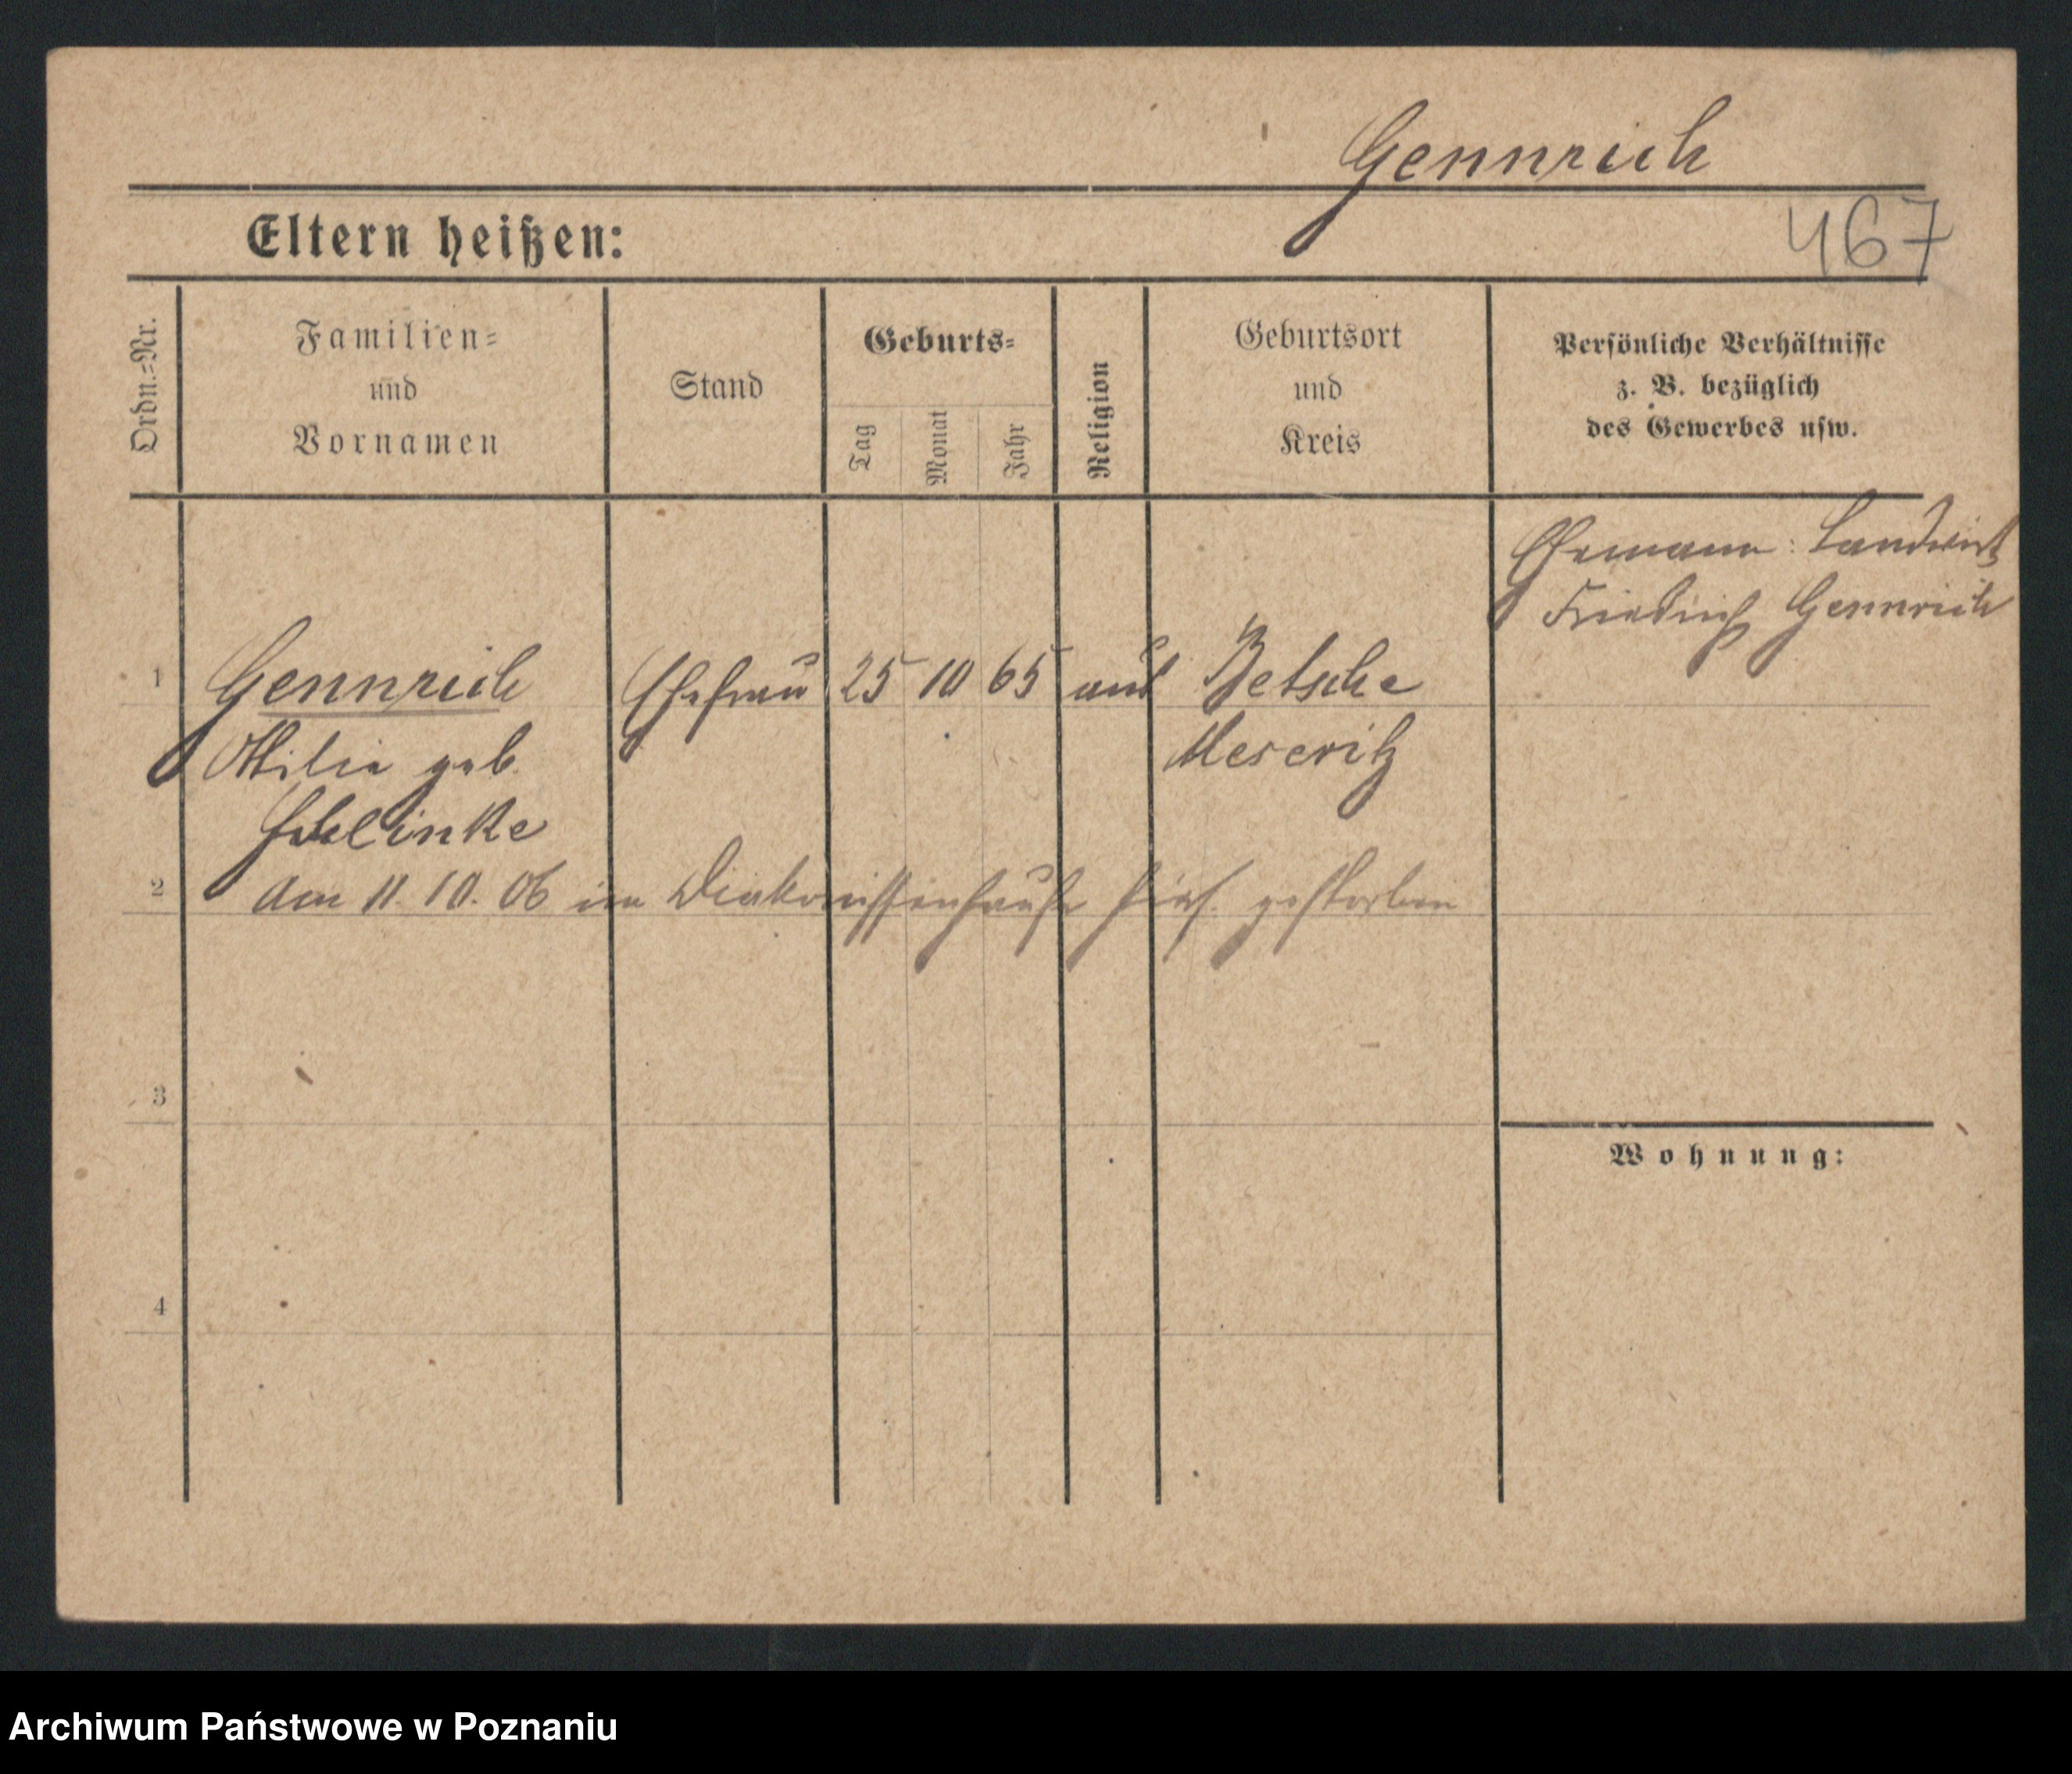 Gennrich
467
Eltern heißen:
Ordn.-Nr.
Familien-
und
Vornamen
Stand
Geburts-
Tag
Monat
Jahr
Religion
Geburtsort
und
Kreis
Persönliche Verhältnisse
z. B. bezüglich
des Gewerbes usw.
Ehemann: Landwirt
Friedrich Gennrich
1 Gennrich Ehefrau 25 10 65 Betsche
Ottilie geb. Meseritz
2 am 11. 10. 06 im Diakonissenhause gestorben
3
Wohnung:
4
Archiwum Państwowe w Poznaniu